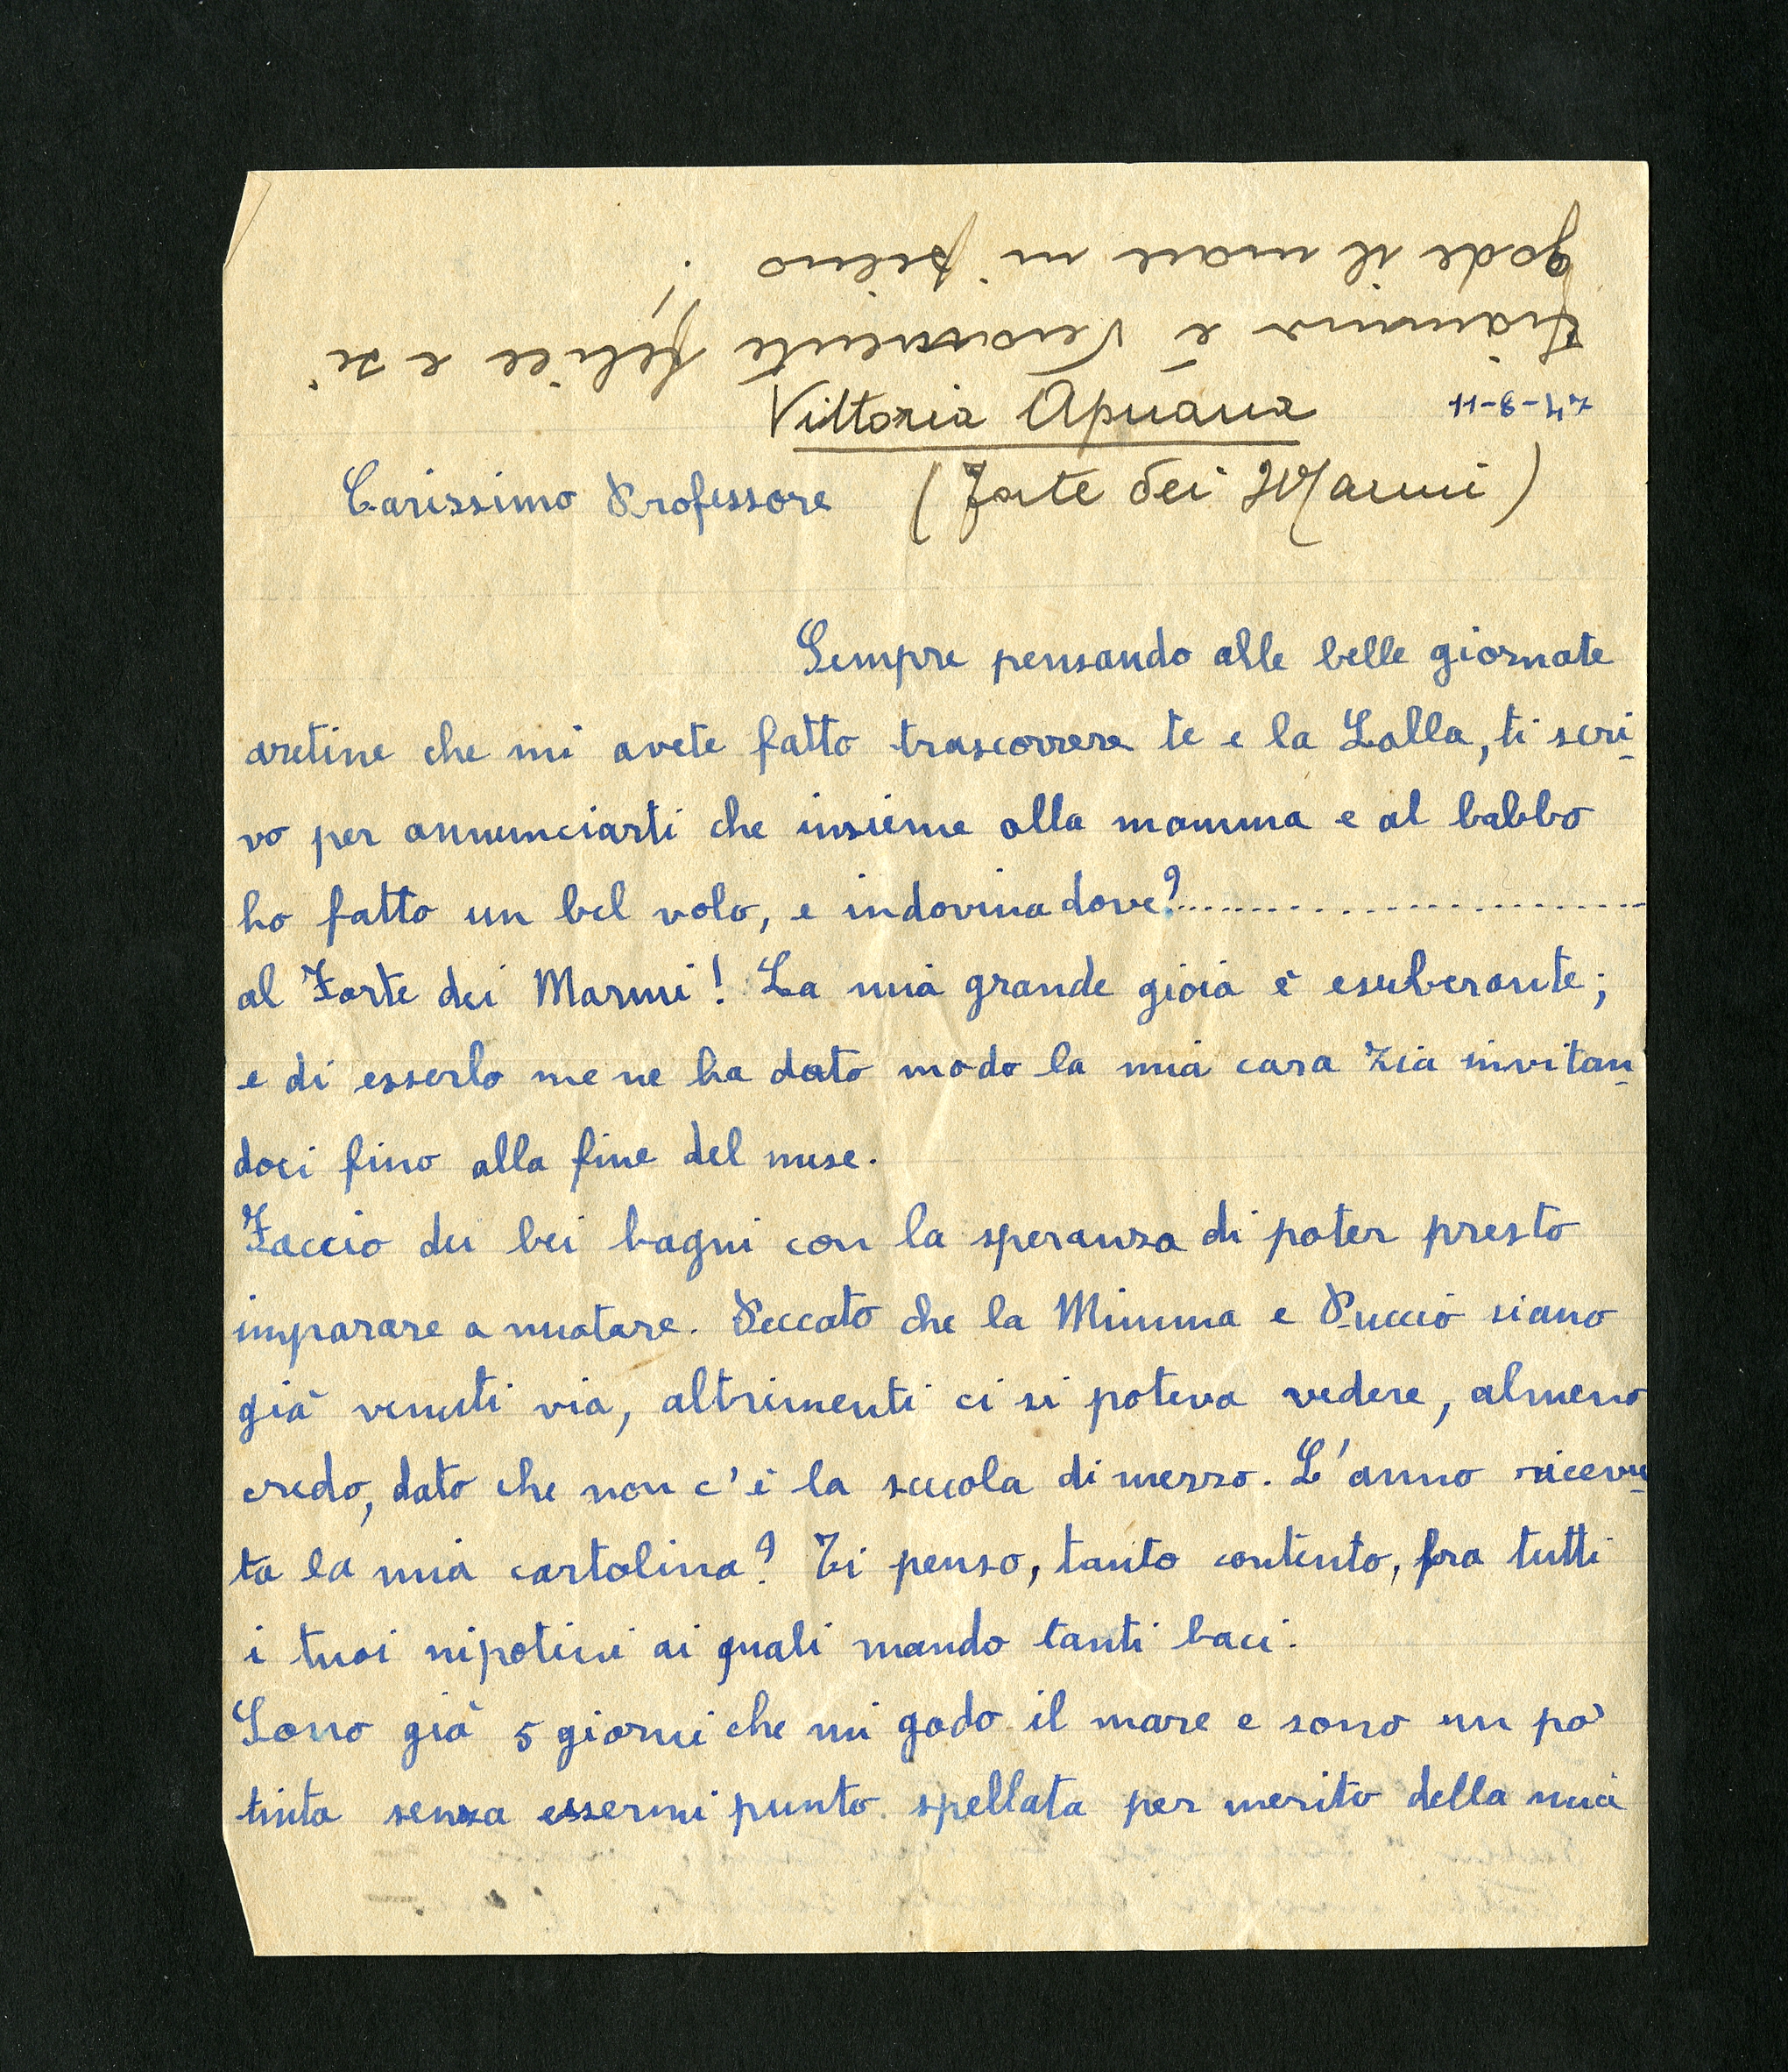 Vittoria Apuana 11-8-47
Carissimo Professore (Forte dei Marmi)
Sempre pensando alle belle giornate
aretine che mi avete fatto trascorrere te e la Lalla, ti scri-
vo per annunciarti che insieme alla mamma e al babbo
ho fatto un bel volo, e indovina dove?..............................
al Forte dei Marmi! La mia grande gioia è esuberante;
e di esserlo me ne ha dato modo la mia cara zia invitan-
doci fino alla fine del mese.
Faccio dei bei bagni con la speranza di poter presto
imparare a nuotare. Peccato che la Mimma e Puccio siano
già venuti via, altrimenti ci si poteva vedere, almeno
credo, dato che non c'è la scuola di mezzo. L'anno ricevu-
ta la mia cartolina? Ti penso, tanto contento, fra tutti
i tuoi nipotini ai quali mando tanti baci.
Sono già 5 giorni che mi godo il mare e sono un po'
tinta senza essermi punto spellata per merito della mia
è veramente felice e si
gode il mare in pieno.